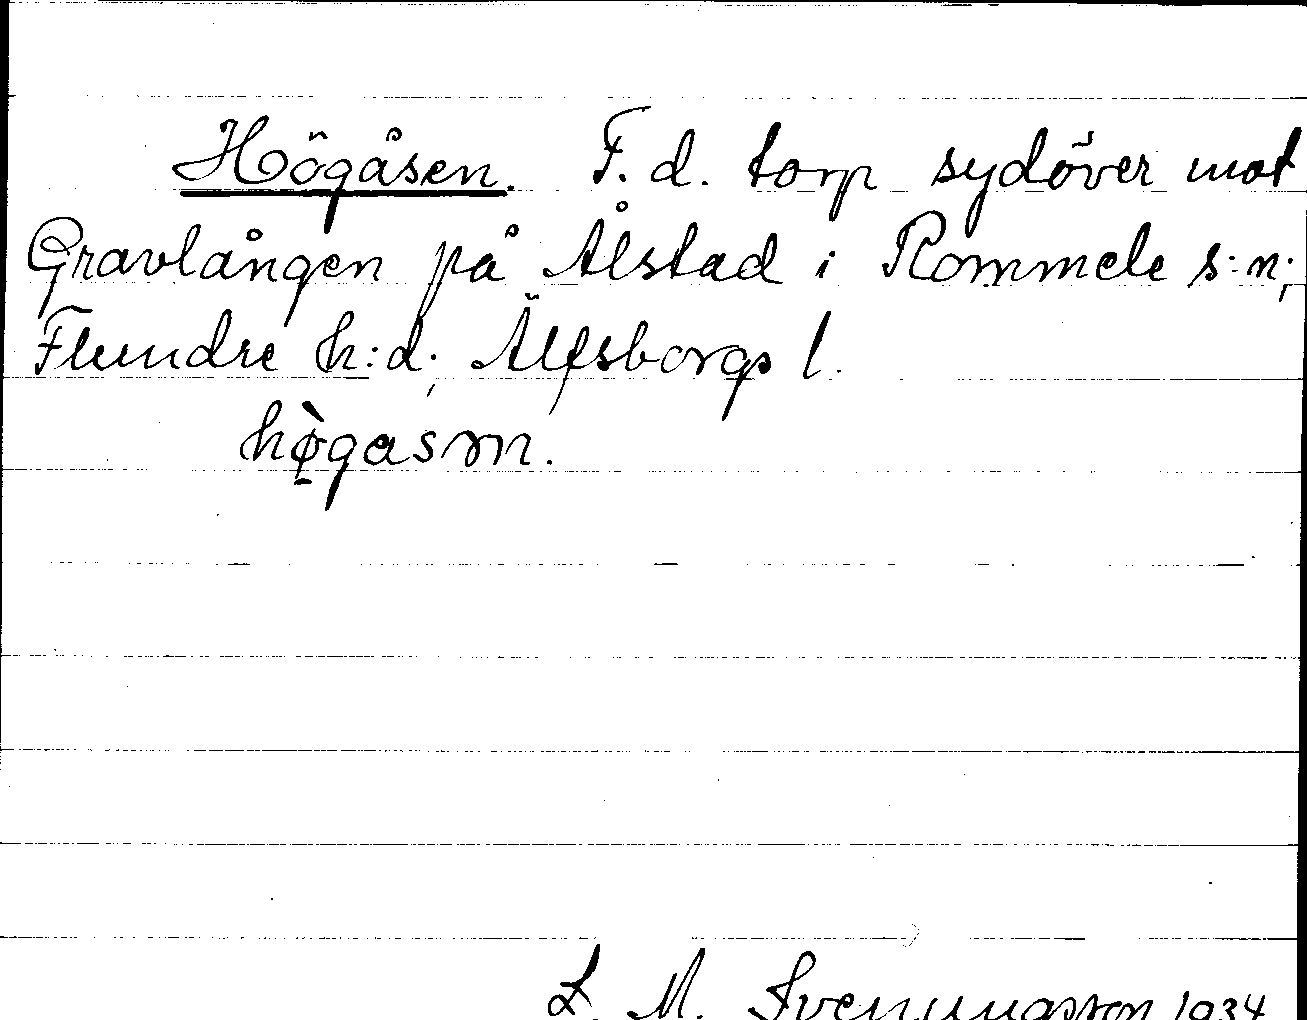 Högåsen. F. d. torp sydöver mot
Gravlången på Ålstad i Rommele s:n;
Flundre h:d; Älfsborgs l.
hø̀gasm.
L. M. Svenungsson 1934